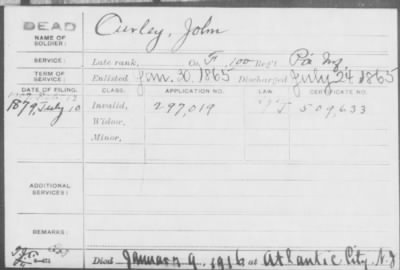 DEAD
NAME OF SOLDIER: Curley, John
SERVICE: Late rank, Co. F, 100 Reg't Pa Inf
TERM OF SERVICE: Enlisted Jan. 30, 1865 Discharged July 24, 1865
DATE OF FILING. CLASS. APPLICATION NO. LAW CERTIFICATE NO.
1879, July 10 Invalid, 297,019 509,633
Widow,
Minor,
ADDITIONAL SERVICES:
REMARKS:
Died January 9, 1916 at Atlantic City, N.J